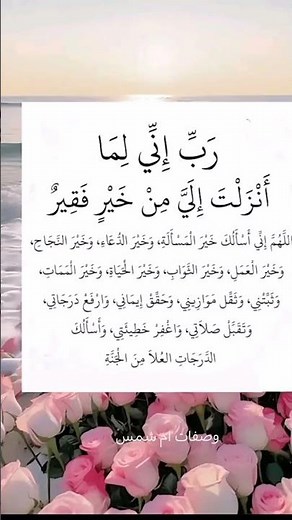 رَبِّ إِنِّي لِمَا
أَنْزَلْتَ إِلَيَّ مِنْ خَيْرٍ فَقِيرٌ
اللَّهُمَّ إِنِّي أَسْأَلُكَ خَيْرَ الْمَسْأَلَةِ، وَخَيْرَ الدُّعَاءِ، وَخَيْرَ النَّجَاحِ،
وَخَيْرَ الْعَمَلِ، وَخَيْرَ الثَّوَابِ، وَخَيْرَ الْحَيَاةِ، وَخَيْرَ الْمَمَاتِ،
وَثَبِّتْنِي، وَثَقِّلْ مَوَازِينِي، وَحَقِّقْ إِيمَانِي، وَارْفَعْ دَرَجَاتِي،
وَتَقَبَّلْ صَلَاتِي، وَاغْفِرْ خَطِيئَتِي، وَأَسْأَلُكَ
الدَّرَجَاتِ العُلَا مِنَ الْجَنَّةِ
وصفات ام شمس